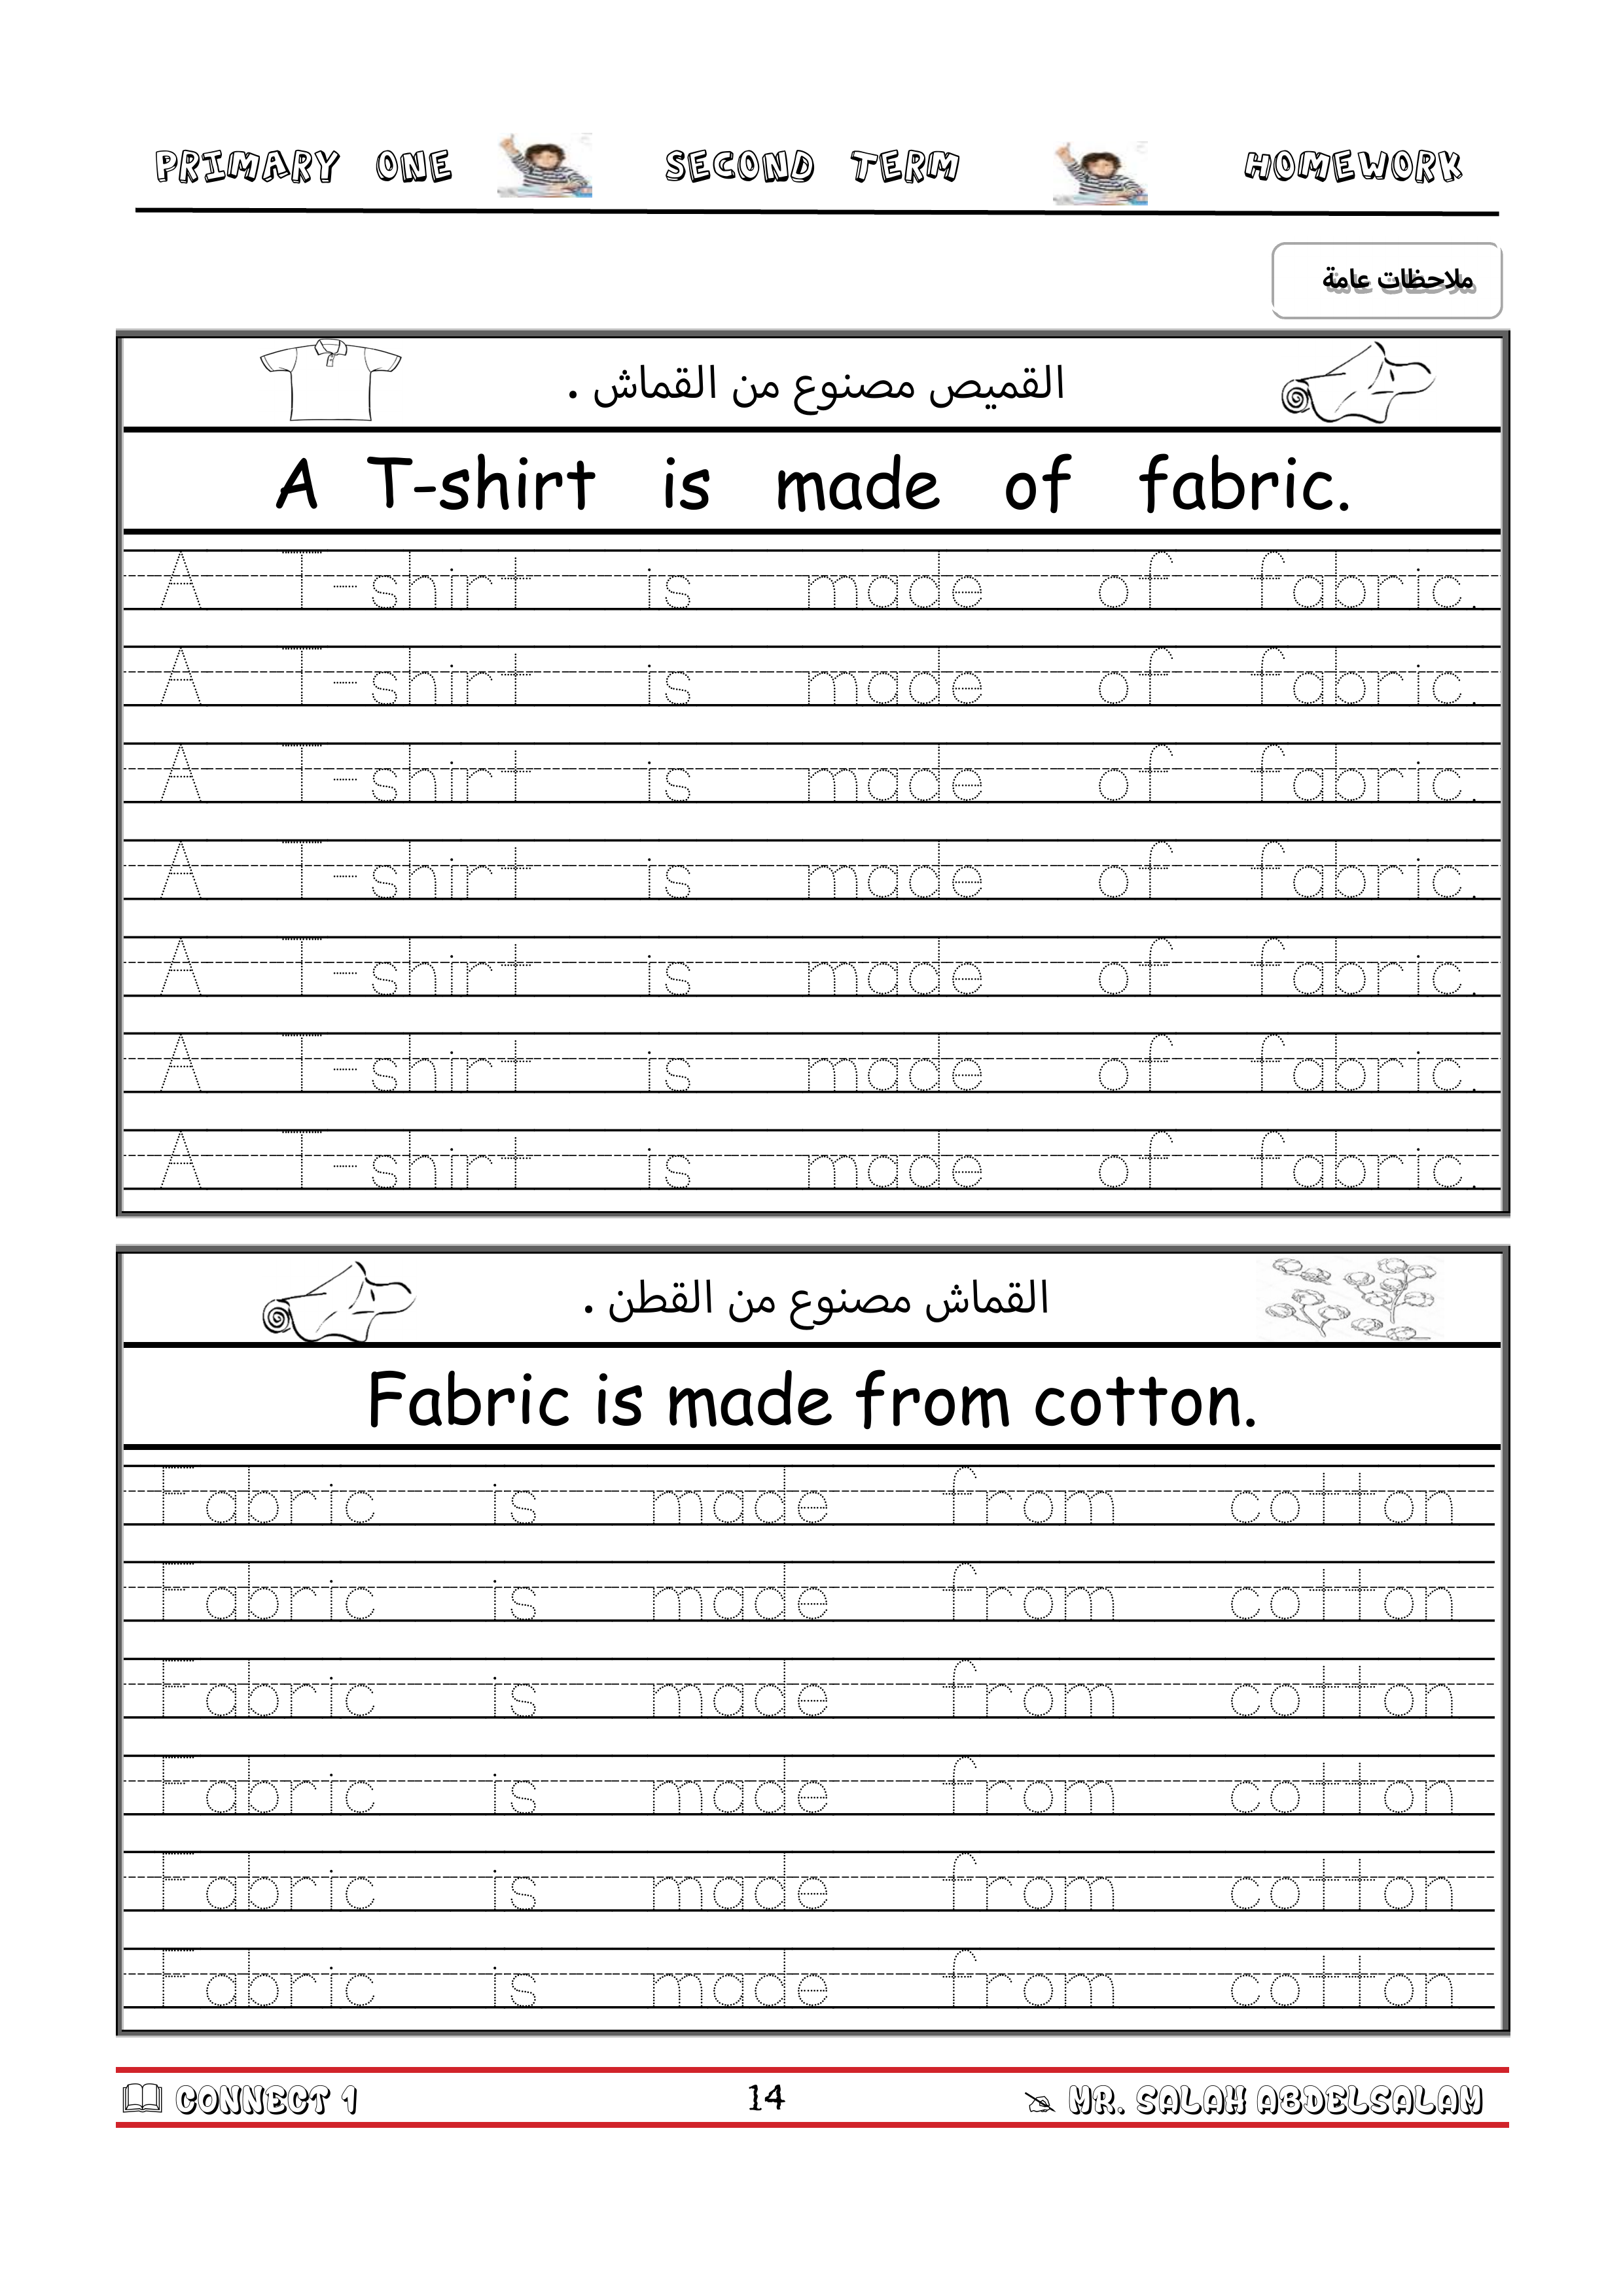 PRIMARY ONE SECOND TERM HOMEWORK
ملاحظات عامة
القميص مصنوع من القماش .
A T-shirt is made of fabric.
A T-shirt is made of fabric.
A T-shirt is made of fabric.
A T-shirt is made of fabric.
A T-shirt is made of fabric.
A T-shirt is made of fabric.
A T-shirt is made of fabric.
A T-shirt is made of fabric.
القماش مصنوع من القطن .
Fabric is made from cotton.
Fabric is made from cotton
Fabric is made from cotton
Fabric is made from cotton
Fabric is made from cotton
Fabric is made from cotton
Fabric is made from cotton
CONNECT 1 14 MR. SALAH ABDELSALAM